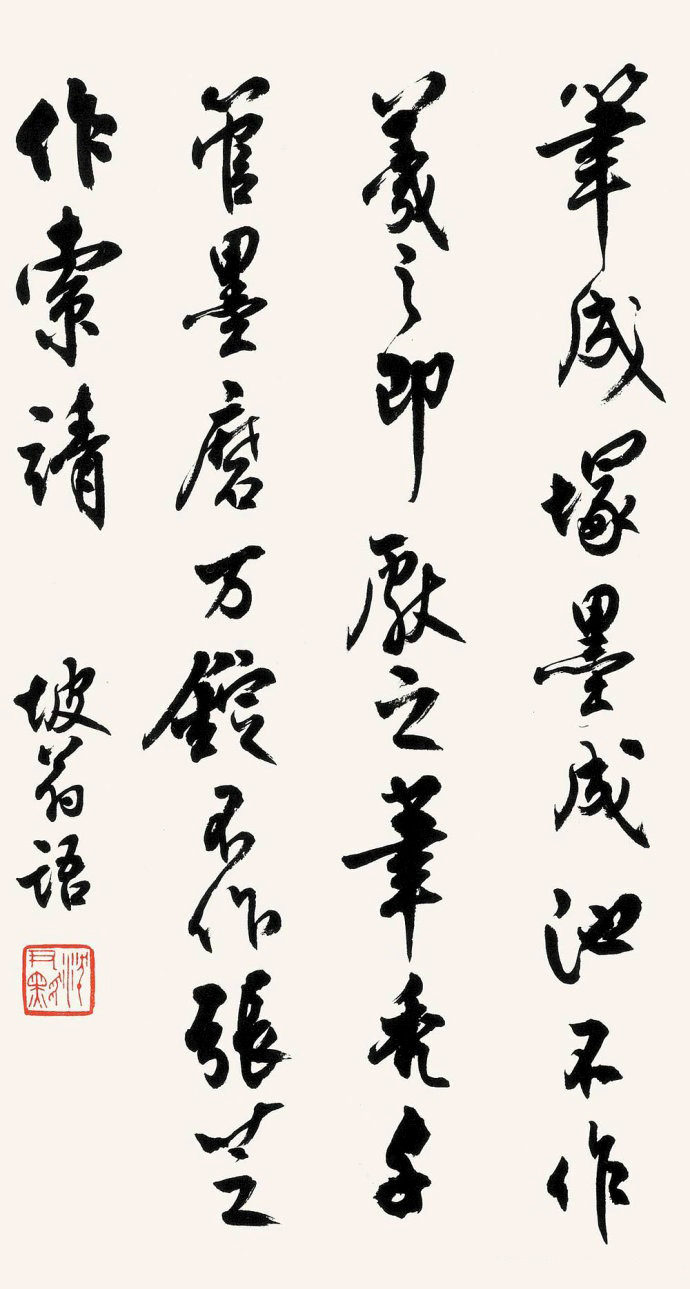 筆成塚墨成池不作
羲之即獻之筆禿千
管墨磨万錠不作張芝
作索靖
坡翁語
沈尹默